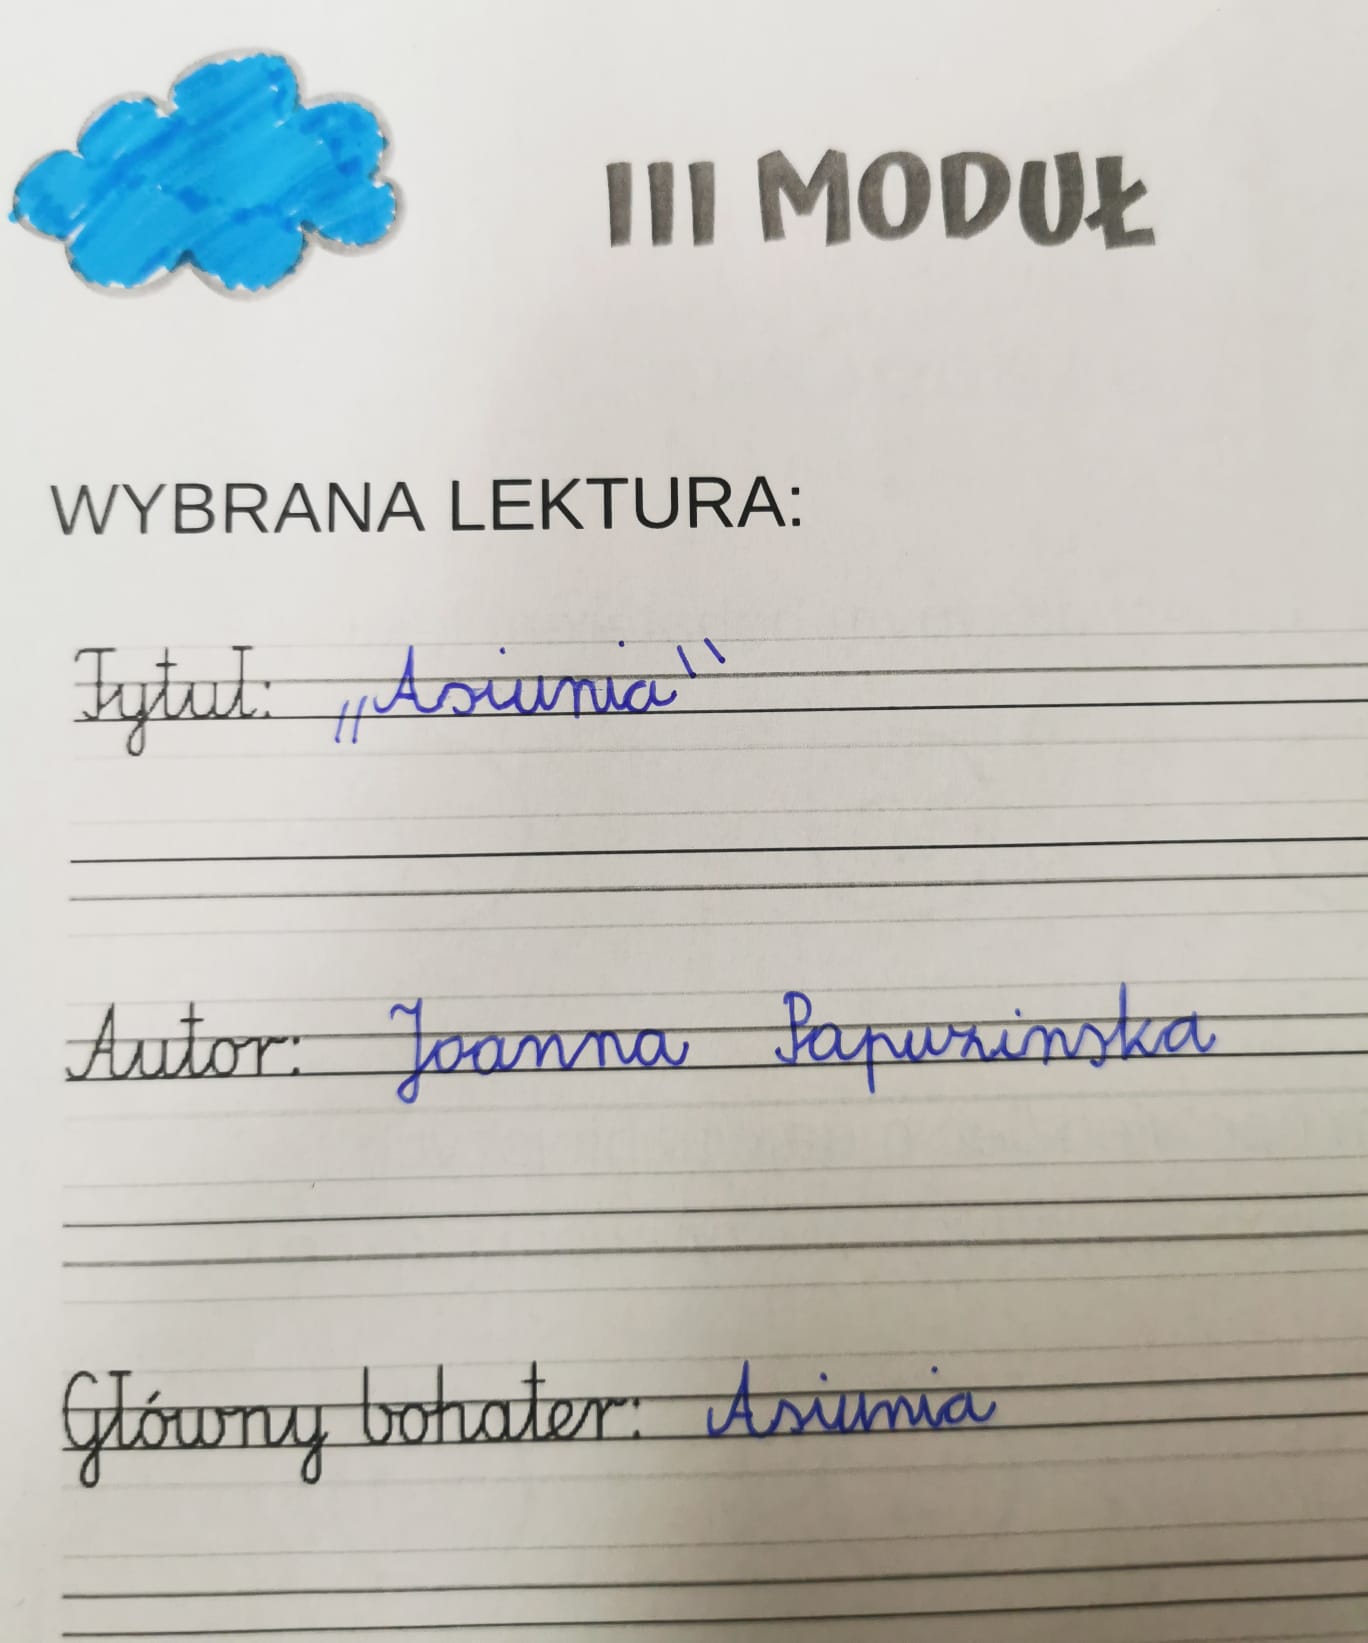 III MODUŁ
WYBRANA LEKTURA:
Tytuł: „Asiunia"
Autor: Joanna Papuzinska
Główny bohater: Asiunia